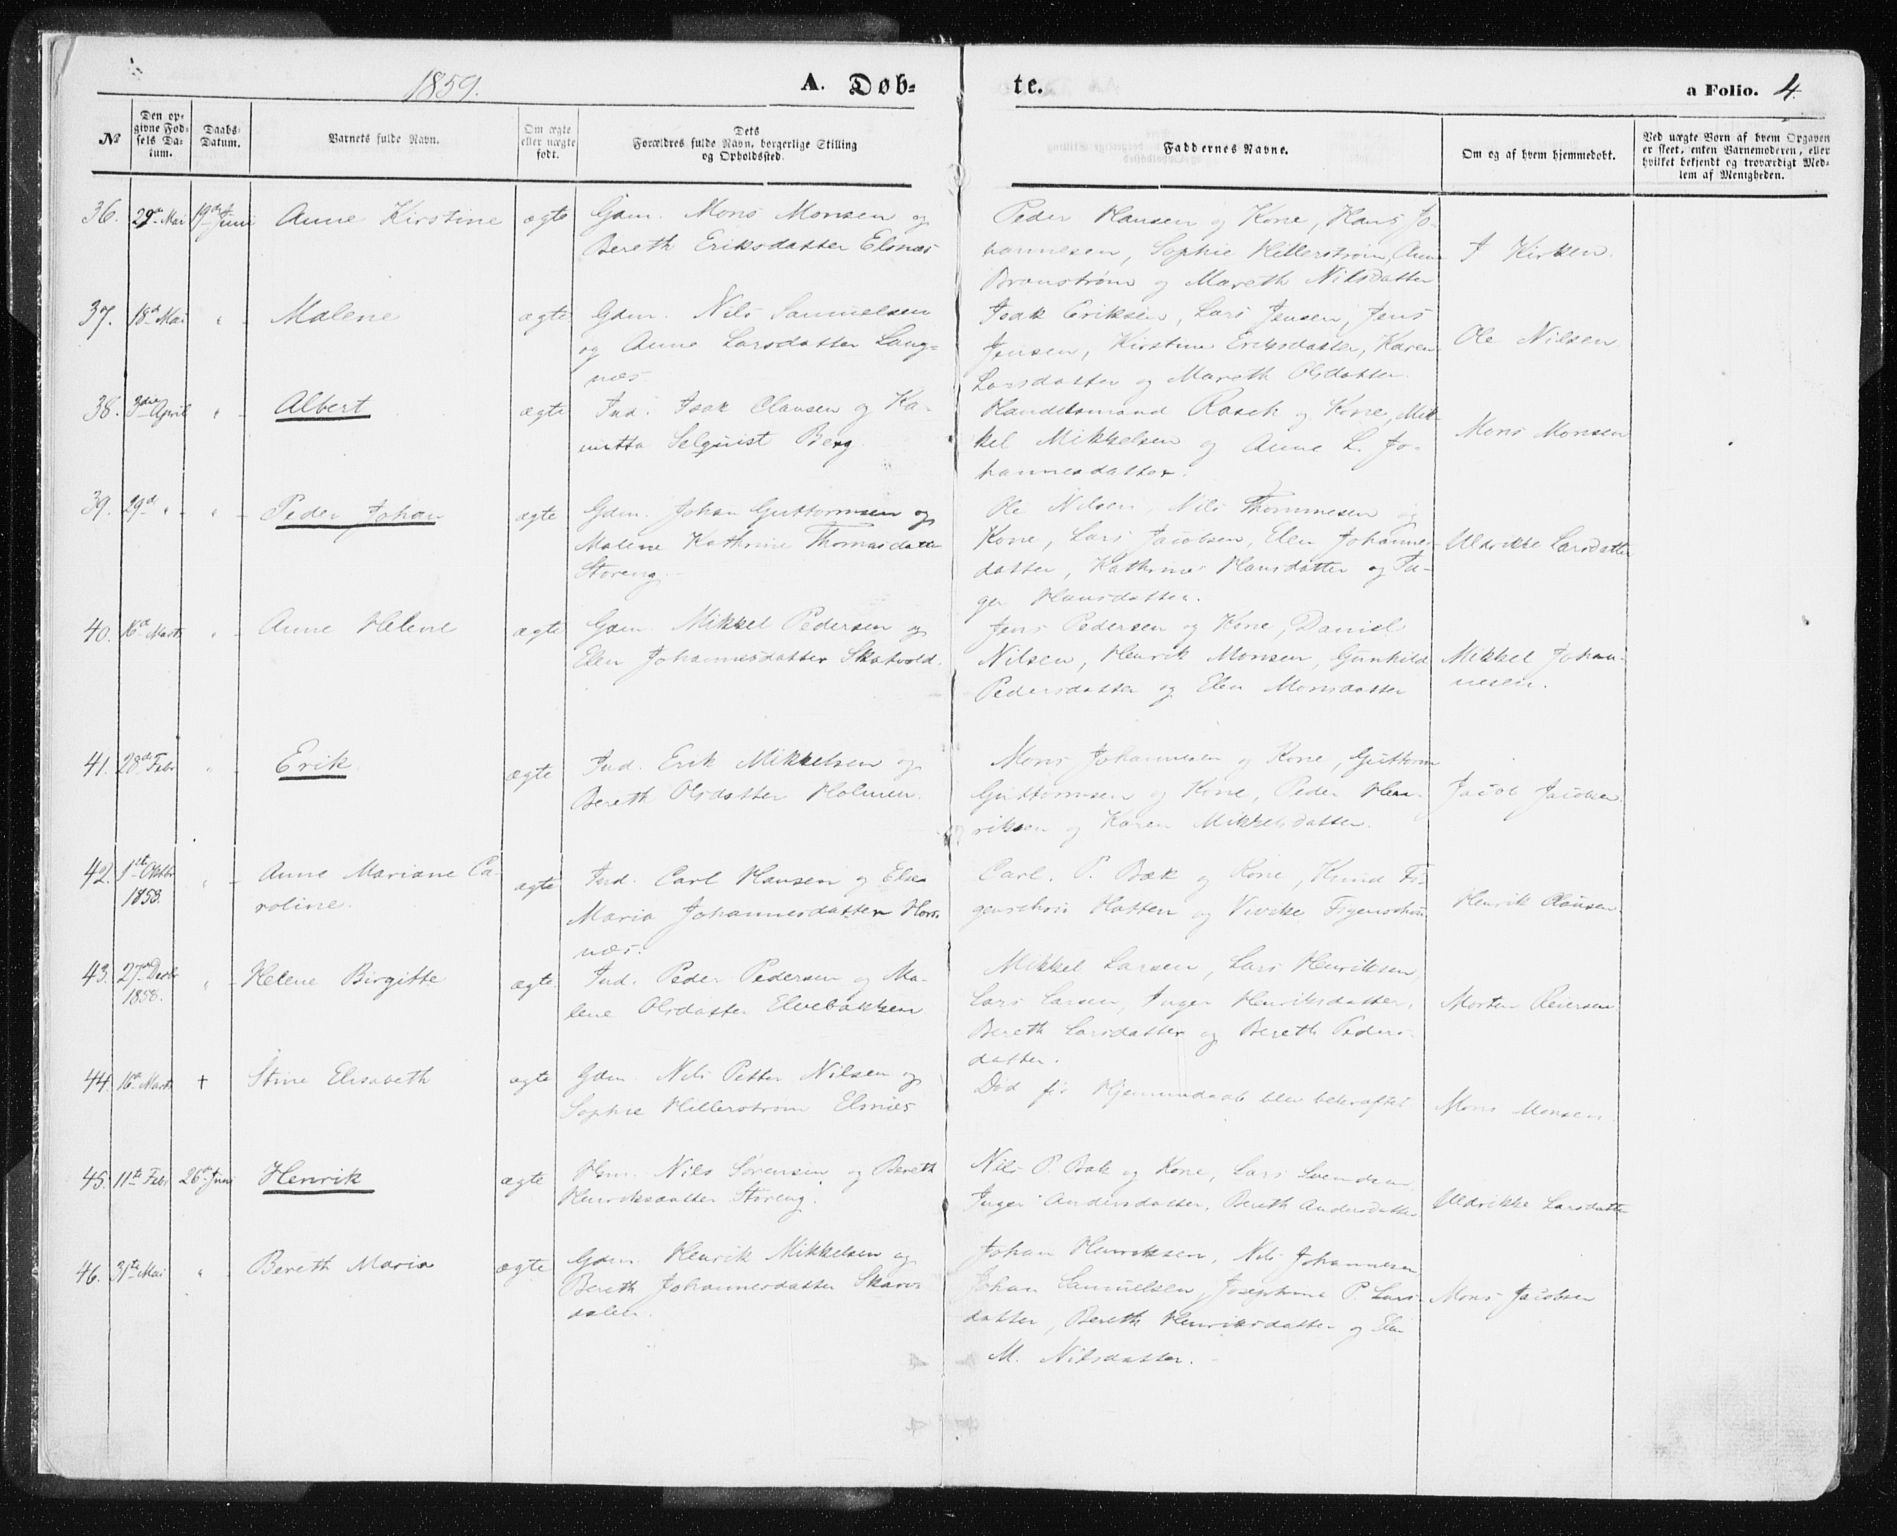 1859.
A. Døb=
te.
a Folio. 4.
№
Den op=
givne Fød=
sels Da=
tum.
Daabs=
Datum.
Barnets fulde Navn.
Om ægte
eller uægte
født.
Dets
Forældres fulde Navn, borgerlige Stilling
og Opholdssted.
Faddernes Navne.
Om og af hvem hjemmedøbt.
Ved uægte Børn af hvem Opgaven
er skeet, enten Barnemoderen, eller
hvilket bekjendt og troværdigt Med=
lem af Menigheden.
36. 29de Mai 19de Juni Anne Kirstine ægte
Gdm. Mons Monsen og
Bereth Eriksdatter Elsnæs
Peder Hansen og Kone, Hans Jo-
hannesen, Sophie Hillerstrøm, Anne
Bronstrøm og Mareth Nilsdatter
37. 18de Mai " - Malene ægte
Gdm. Nils Samuelsen
og Anne Larsdatter Lang=
næs
Isak Eriksen, Lars Jensen, Jens
Jensen, Kirstine Eriksdatter, Karen
Larsdatter og Mareth Olsdatter
Ole Nilsen
38. 3die April " - Albert ægte
Ind. Isak Clausen og Ka-
Selquist Berg
Handelsmand Rasch og Kone, Mik-
kel Mikkelsen og Anne L. Jo-
hannesdatter.
Mons Monsen
39. 29de " - " - Peder Johan ægte
Gdm. Johan Guttormsen og
Malene Kathrine Thomasdatter
Storeng.
Ole Nilsen, Nils Thommesen og
Kone, Lars Jacobsen, Elen Johannes-
datter, Kathrine Hansdatter og In-
ger Hansdatter.
Uldrikke Larsdatter
40. 16de Marts " - Anne Helene ægte
Gdm. Mikkel Pedersen og
Elen Johannesdatter Skatvold.
Jens Pedersen og Kone, Daniel
Nilsen, Henrik Monsen, Gunhild
Pedersdatter og Elen Monsdatter
Mikkel Johan-
nesen.
41. 28de Febr " - Erik ægte
Ind. Erik Mikkelsen og
Bereth Olsdatter Holmen.
Mons Johannesen og Kone, Guttorm
Guttormsen og Kone, Peder Hen-
riksen og Karen Mikkelsdatter.
Jacob Jacobsen.
42. 1st Oktbr
1858. " - Anne Mariane Ca-
roline. ægte
Ind. Carl Hansen og Elen
Maria Johannesdatter Hors-
næs.
Carl. P. Bæk og Kone, Knud Fi-
genschou Hatten og Vivike Figenschou
Henrik Clausen.
43. 27de Decbr
1858. " - Helene Birgitte ægte
Ind. Peder Pedersen og Ma-
lene Olsdatter Elvebakken
Mikkel Larsen, Lars Henriksen,
Lars Larsen, Inger Henriksdatter,
Bereth Larsdatter og Bereth Peders-
datter.
Morten Reiersen
44. 16de Marts + Stine Elisabeth ægte
Gdm Nils Petter Nilsen og
Sophie Hillerstrøm Elsnæs
Død før Hjemmedaab blev bekræftet
Mons Monsen.
45. 11te Febr 26de Juni Henrik ægte
Hsm. Nils Sørensen og Bereth
Henriksdatter Storeng.
Nils P. Bak og Kone, Lars Svendsen,
Inger Andersdatter, Bereth Andersdatter
Uldrikke Larsdatter
46. 31te Mai " - Bereth Maria ægte
Gdm. Henrik Mikkelsen og
Bereth Johannesdatter Skarvs
dalen.
Johan Henriksen, Nils Johannesen
Johan Samuelsen, Josephine P. Lars-
datter, Bereth Henriksdatter og Elen
M. Nilsdatter.
Mons Jacobsen